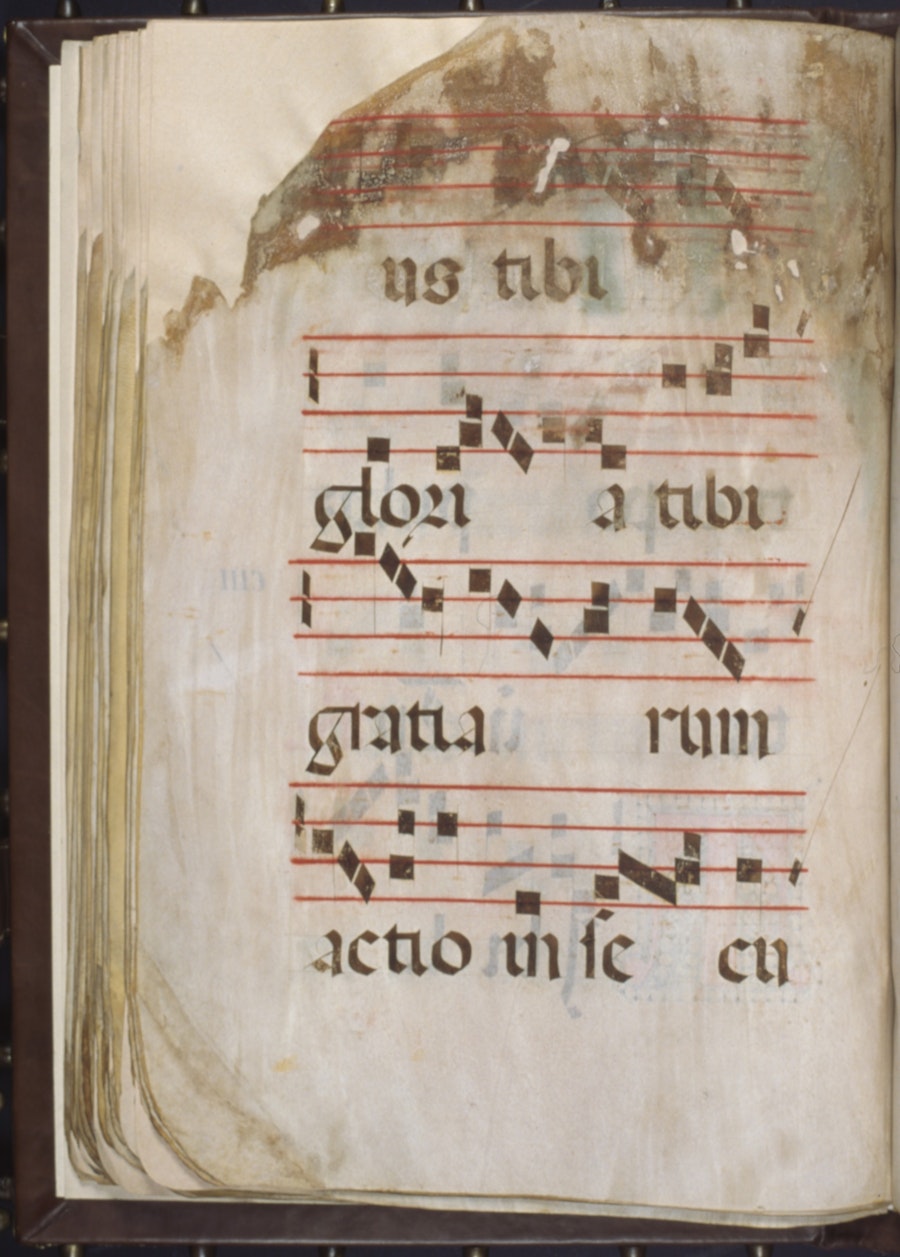 us tibi
glori a tibi
gratia rum
actio in se cu